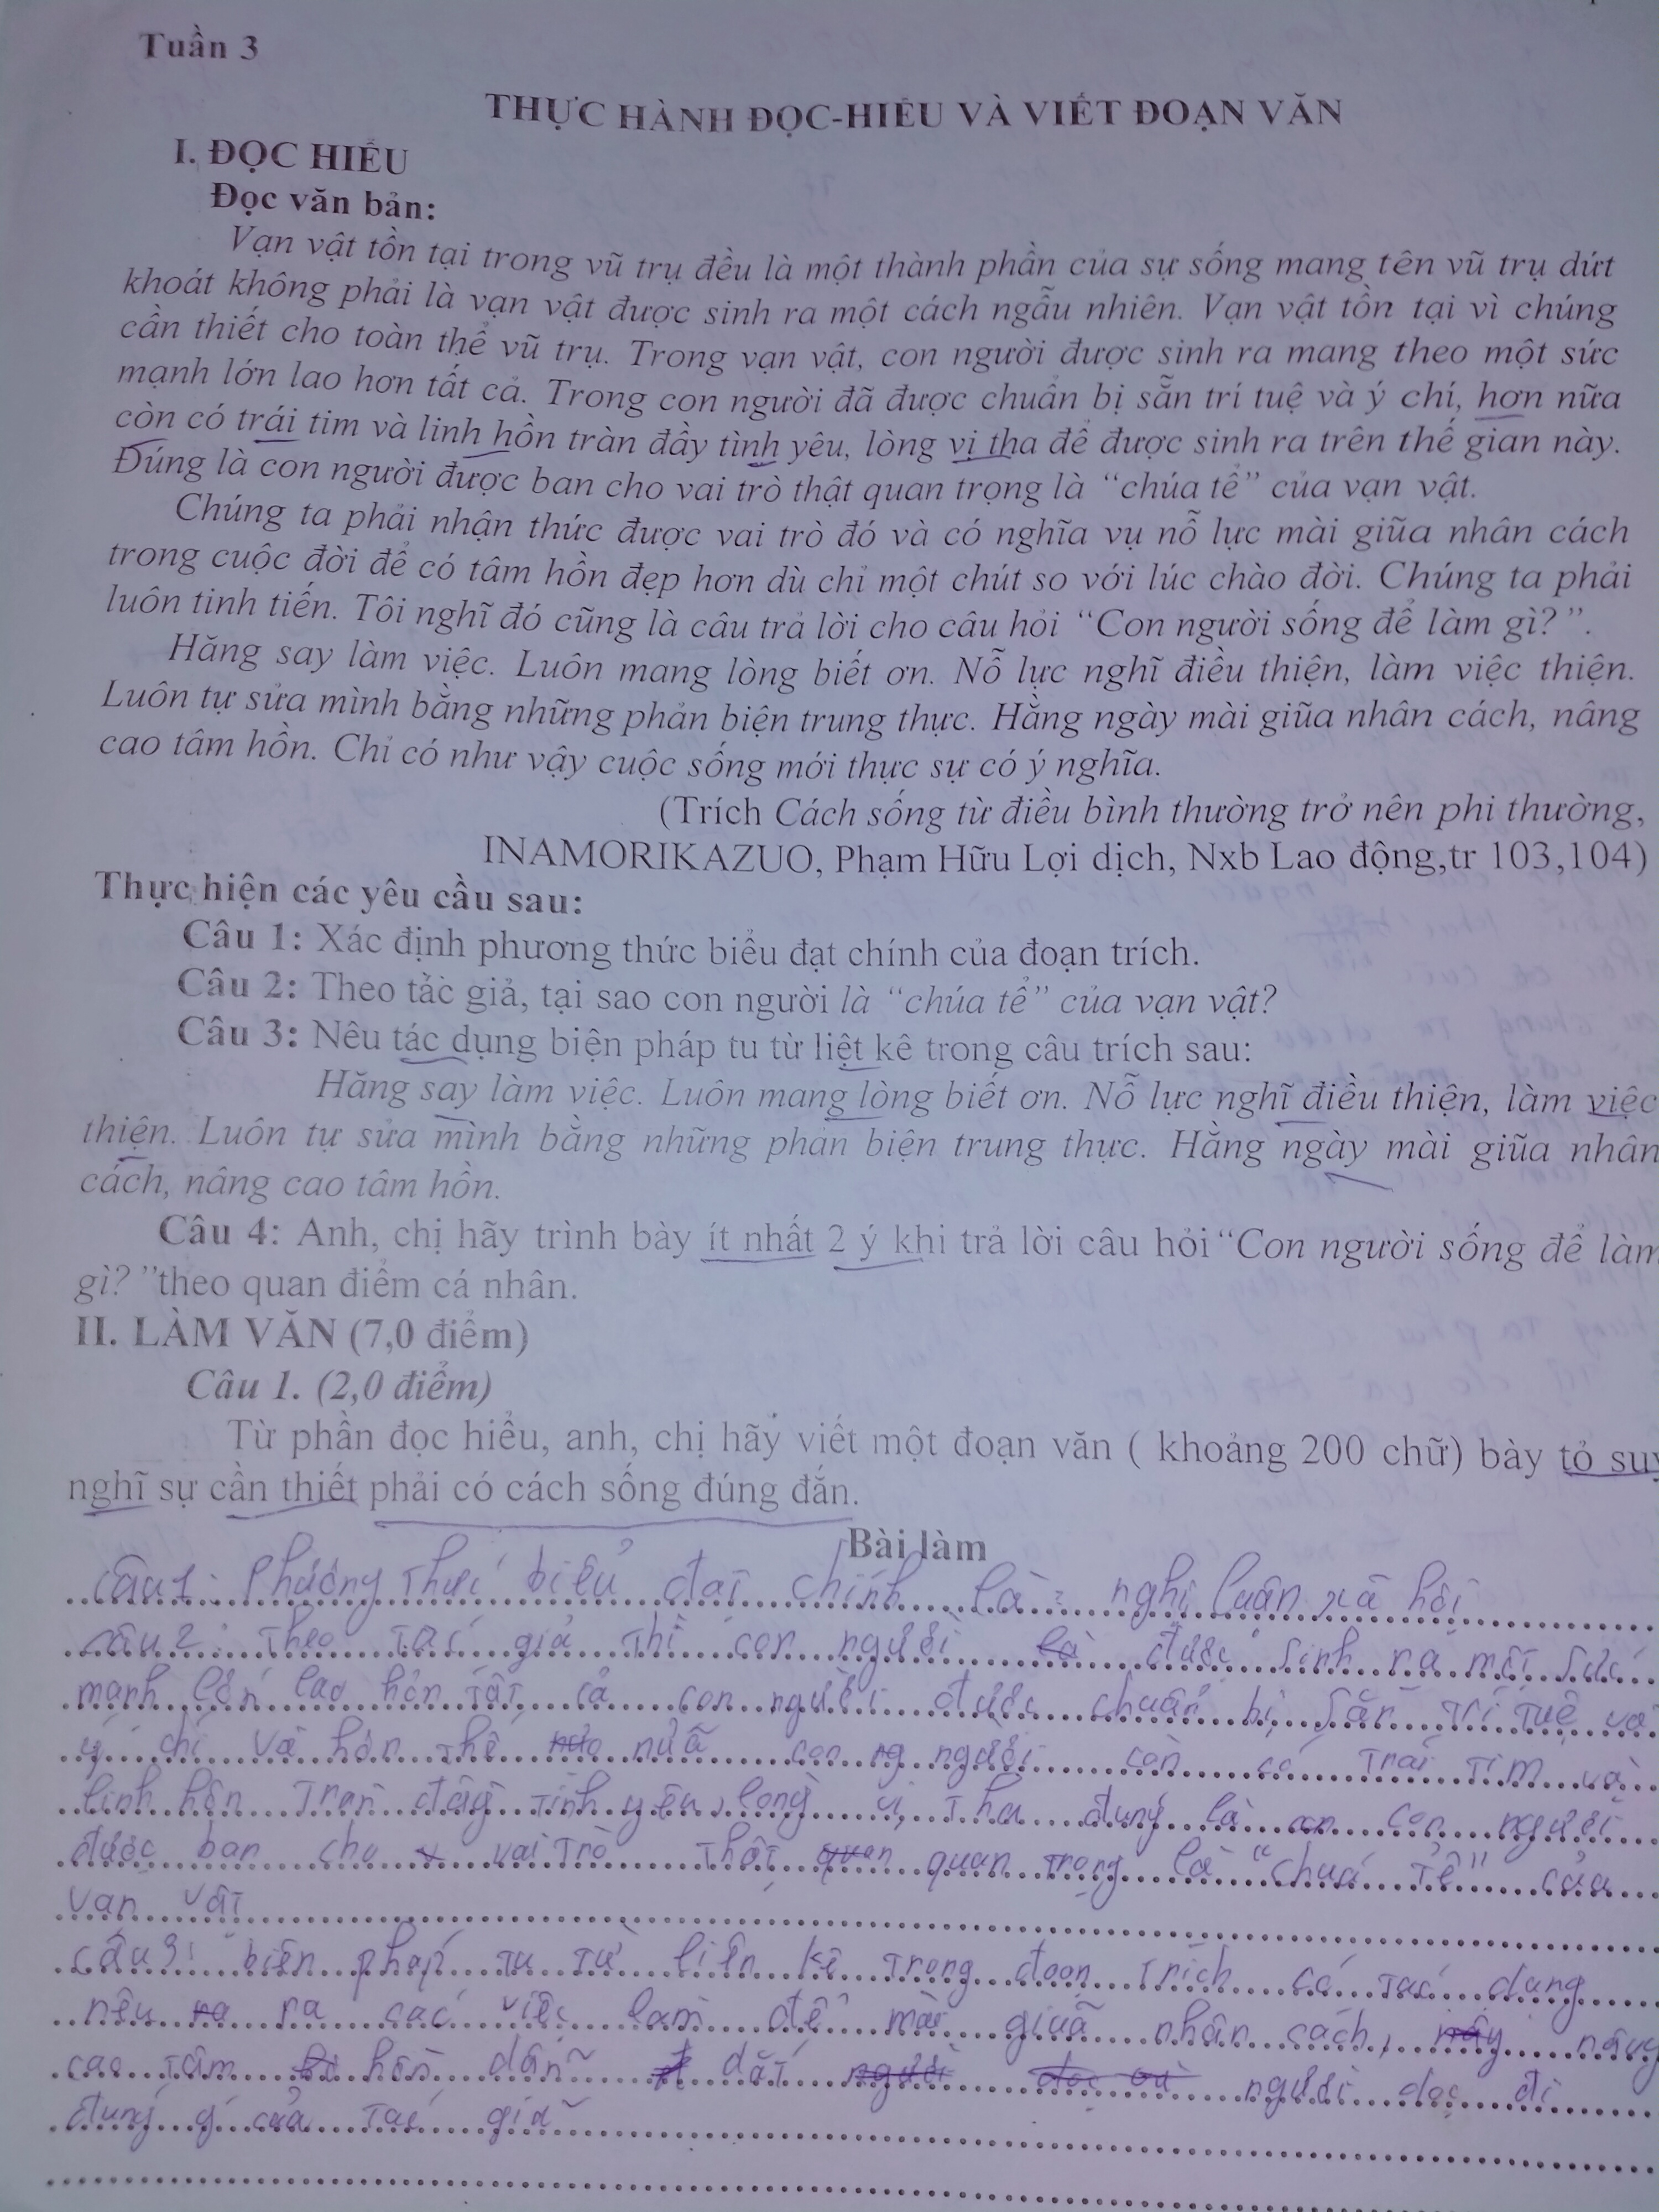 Tuần 3
THỰC HÀNH ĐỌC-HIỂU VÀ VIẾT ĐOẠN VĂN
I. ĐỌC HIỂU
Đọc văn bản:
Vạn vật tồn tại trong vũ trụ đều là một thành phần của sự sống mang tên vũ trụ dứt
khoát không phải là vạn vật được sinh ra một cách ngẫu nhiên. Vạn vật tồn tại vì chúng
cần thiết cho toàn thể vũ trụ. Trong vạn vật, con người được sinh ra mang theo một sức
mạnh lớn lao hơn tất cả. Trong con người đã được chuẩn bị sẵn trí tuệ và ý chí, hơn nữa
còn có trái tim và linh hồn tràn đầy tình yêu, lòng vị tha để được sinh ra trên thế gian này.
Đúng là con người được ban cho vai trò thật quan trọng là “chúa tể” của vạn vật.
Chúng ta phải nhận thức được vai trò đó và có nghĩa vụ nỗ lực mài giũa nhân cách
trong cuộc đời để có tâm hồn đẹp hơn dù chỉ một chút so với lúc chào đời. Chúng ta phải
luôn tinh tiến. Tôi nghĩ đó cũng là câu trả lời cho câu hỏi “Con người sống để làm gì?”.
Hăng say làm việc. Luôn mang lòng biết ơn. Nỗ lực nghĩ điều thiện, làm việc thiện.
Luôn tự sửa mình bằng những phản biện trung thực. Hằng ngày mài giũa nhân cách, nâng
cao tâm hồn. Chỉ có như vậy cuộc sống mới thực sự có ý nghĩa.
(Trích Cách sống từ điều bình thường trở nên phi thường,
INAMORIKAZUO, Phạm Hữu Lợi dịch, Nxb Lao động,tr 103,104)
Thực hiện các yêu cầu sau:
Câu 1: Xác định phương thức biểu đạt chính của đoạn trích.
Câu 2: Theo tắc giả, tại sao con người là “chúa tể” của vạn vật?
Câu 3: Nêu tác dụng biện pháp tu từ liệt kê trong câu trích sau:
Hăng say làm việc. Luôn mang lòng biết ơn. Nỗ lực nghĩ điều thiện, làm việc
thiện. Luôn tự sửa mình bằng những phản biện trung thực. Hằng ngày mài giũa nhân
cách, nâng cao tâm hồn.
Câu 4: Anh, chị hãy trình bày ít nhất 2 ý khi trả lời câu hỏi “Con người sống để làm
gì?”theo quan điểm cá nhân.
II. LÀM VĂN (7,0 điểm)
Câu 1. (2,0 điểm)
Từ phần đọc hiểu, anh, chị hãy viết một đoạn văn ( khoảng 200 chữ) bày tỏ suy
nghĩ sự cần thiết phải có cách sống đúng đắn.
Bài làm
Câu 1: Phương thức biểu đạt chính là: nghị luận xã hội
câu 2: Theo tác giả thì con người được sinh ra một sức
mạnh lớn lao hơn tất cả con người được chuẩn bị sẵn trí tuệ và
ý chí và hơn thế nữa con người còn có trái tim và
linh hồn tràn đầy tình yêu, lòng vị tha đúng là con người
được ban cho vai trò thật quan trọng là "chúa tể" của
vạn vật
câu 3: biện pháp tu từ liên kê trong đoạn trích có tác dụng
nêu ra các việc làm để mài giuã nhân cách, nâng
cao tâm hồn dẫn dắt người đọc đi
đúng ý của tác giả